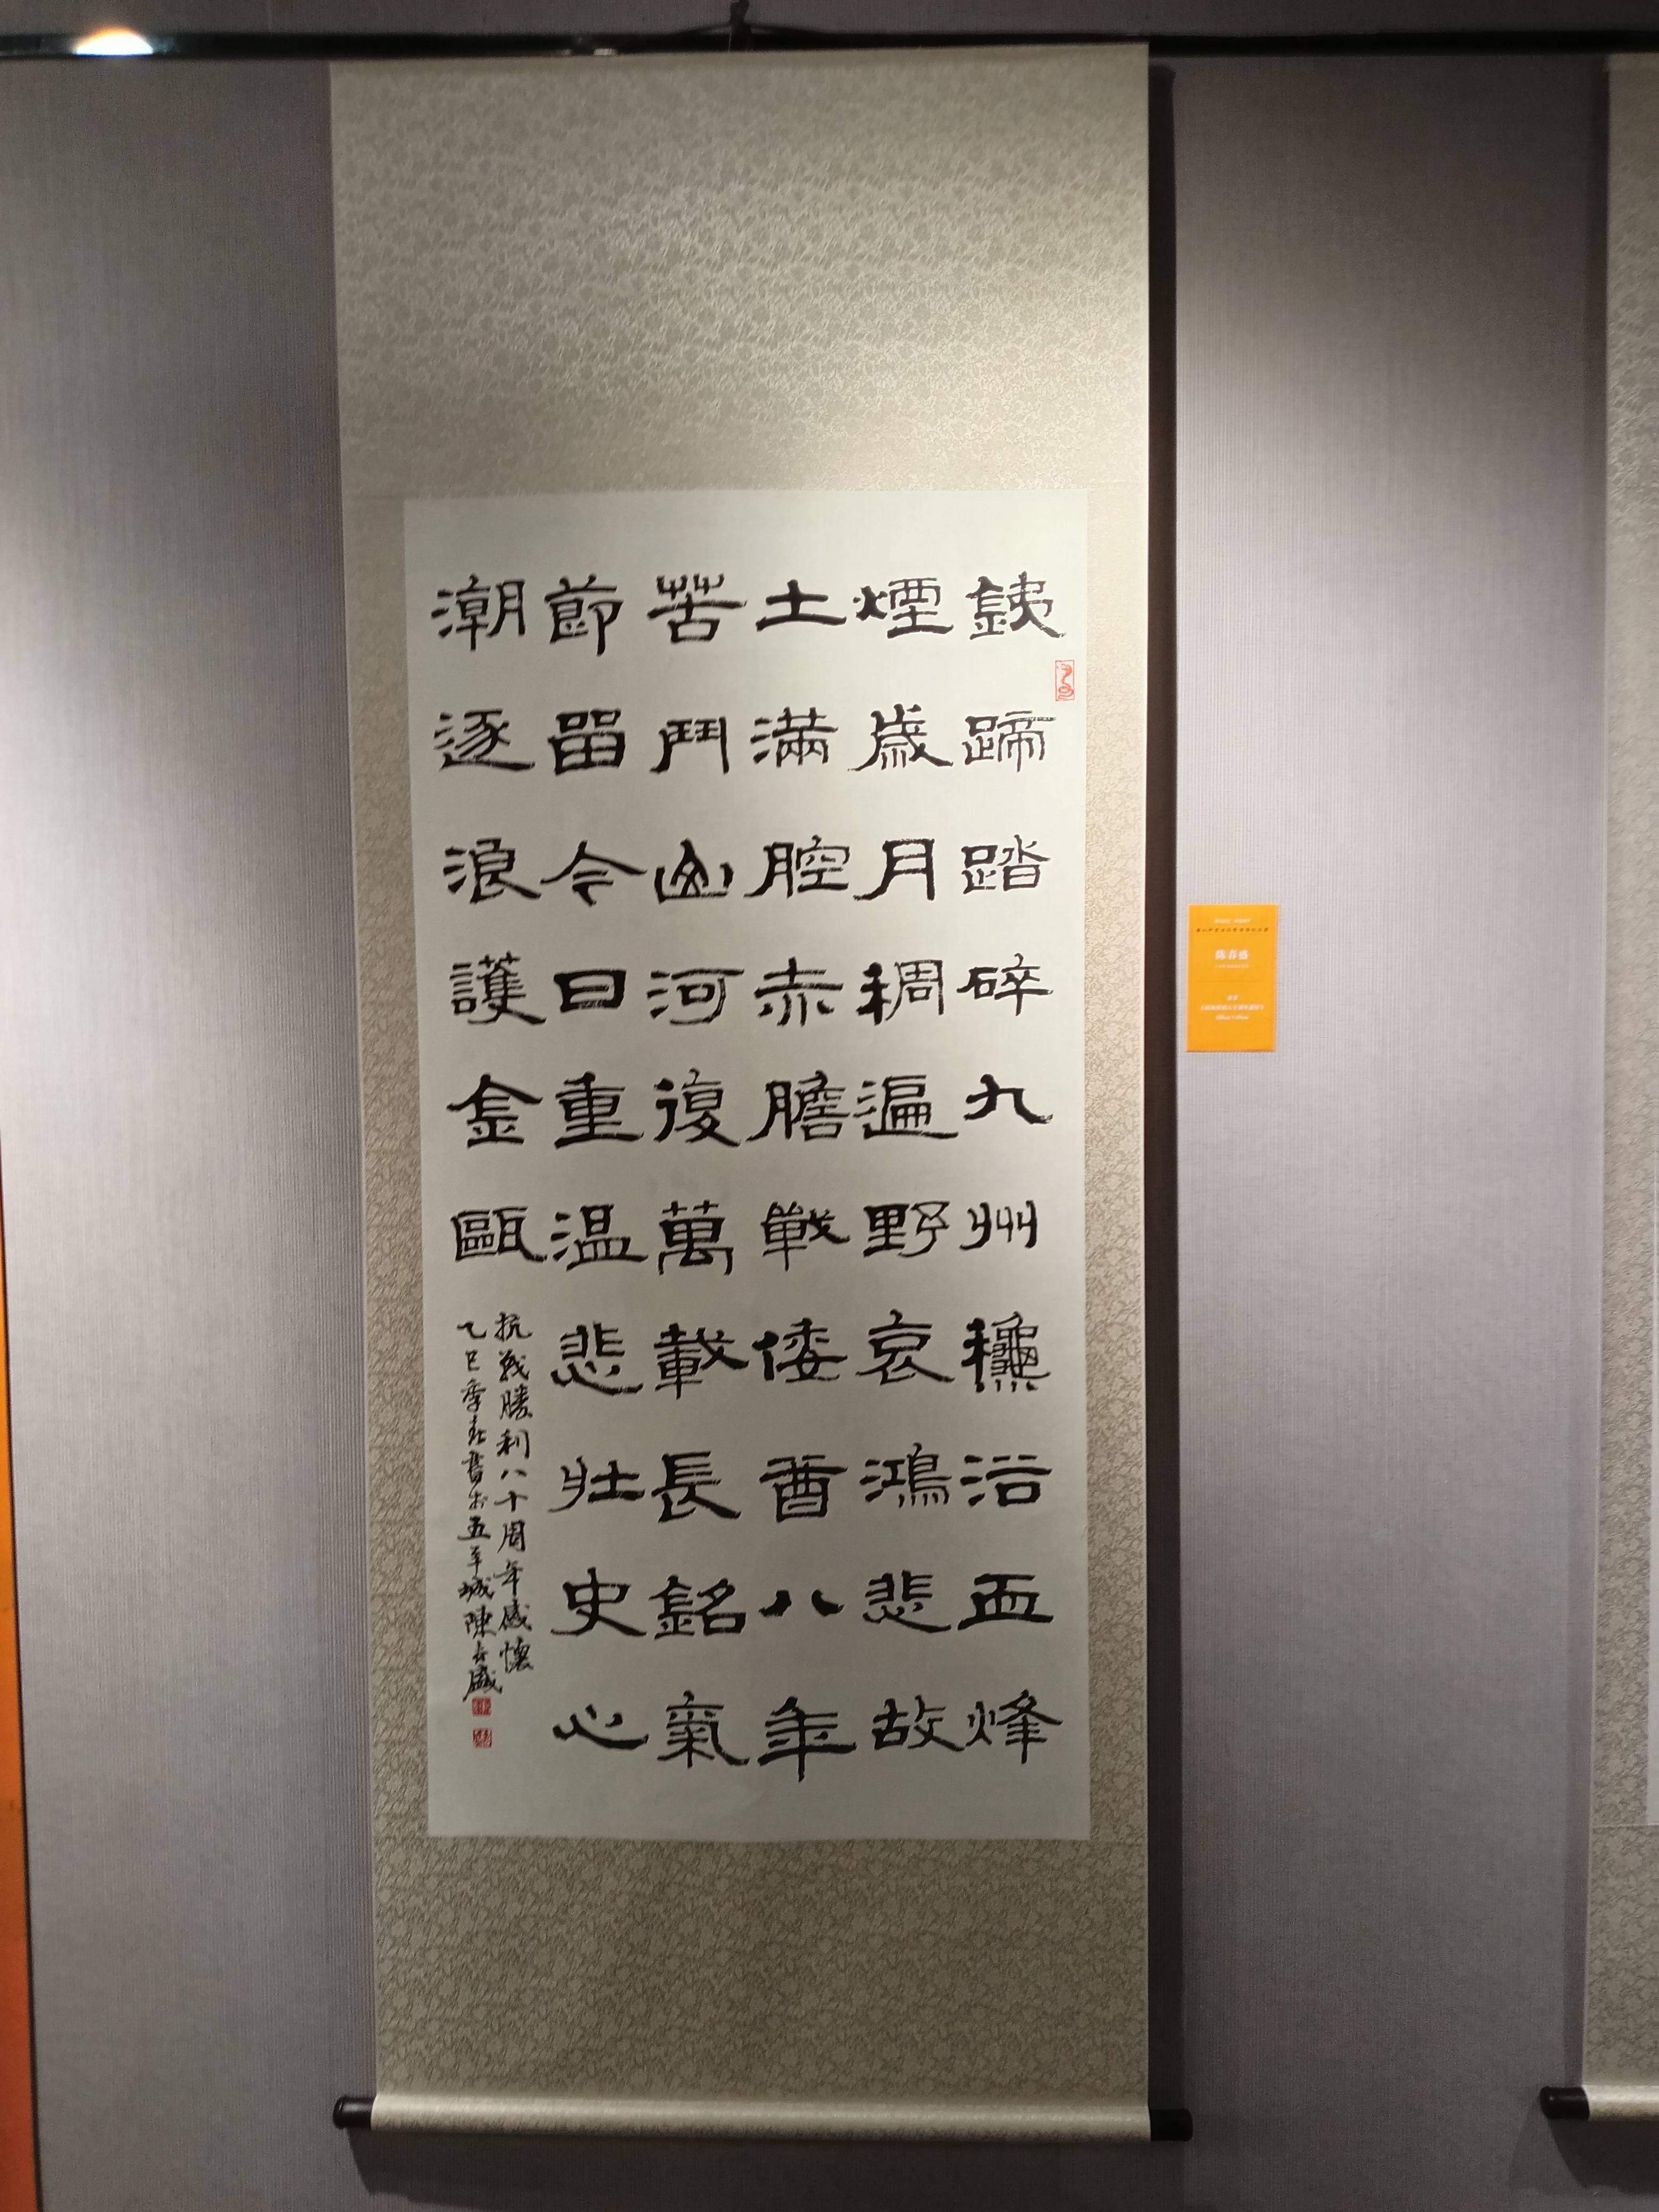 銕蹄踏碎九州穐浴血烽
煙歲月稠遍野哀鴻悲故
土滿腔赤膽戰倭酋八年
苦鬥山河復萬載長銘氣
節留今日重温悲壯史心
潮逐浪護金甌
抗戰勝利八十周年感懷
乙巳季春書於五羊城陳春盛
陈春盛